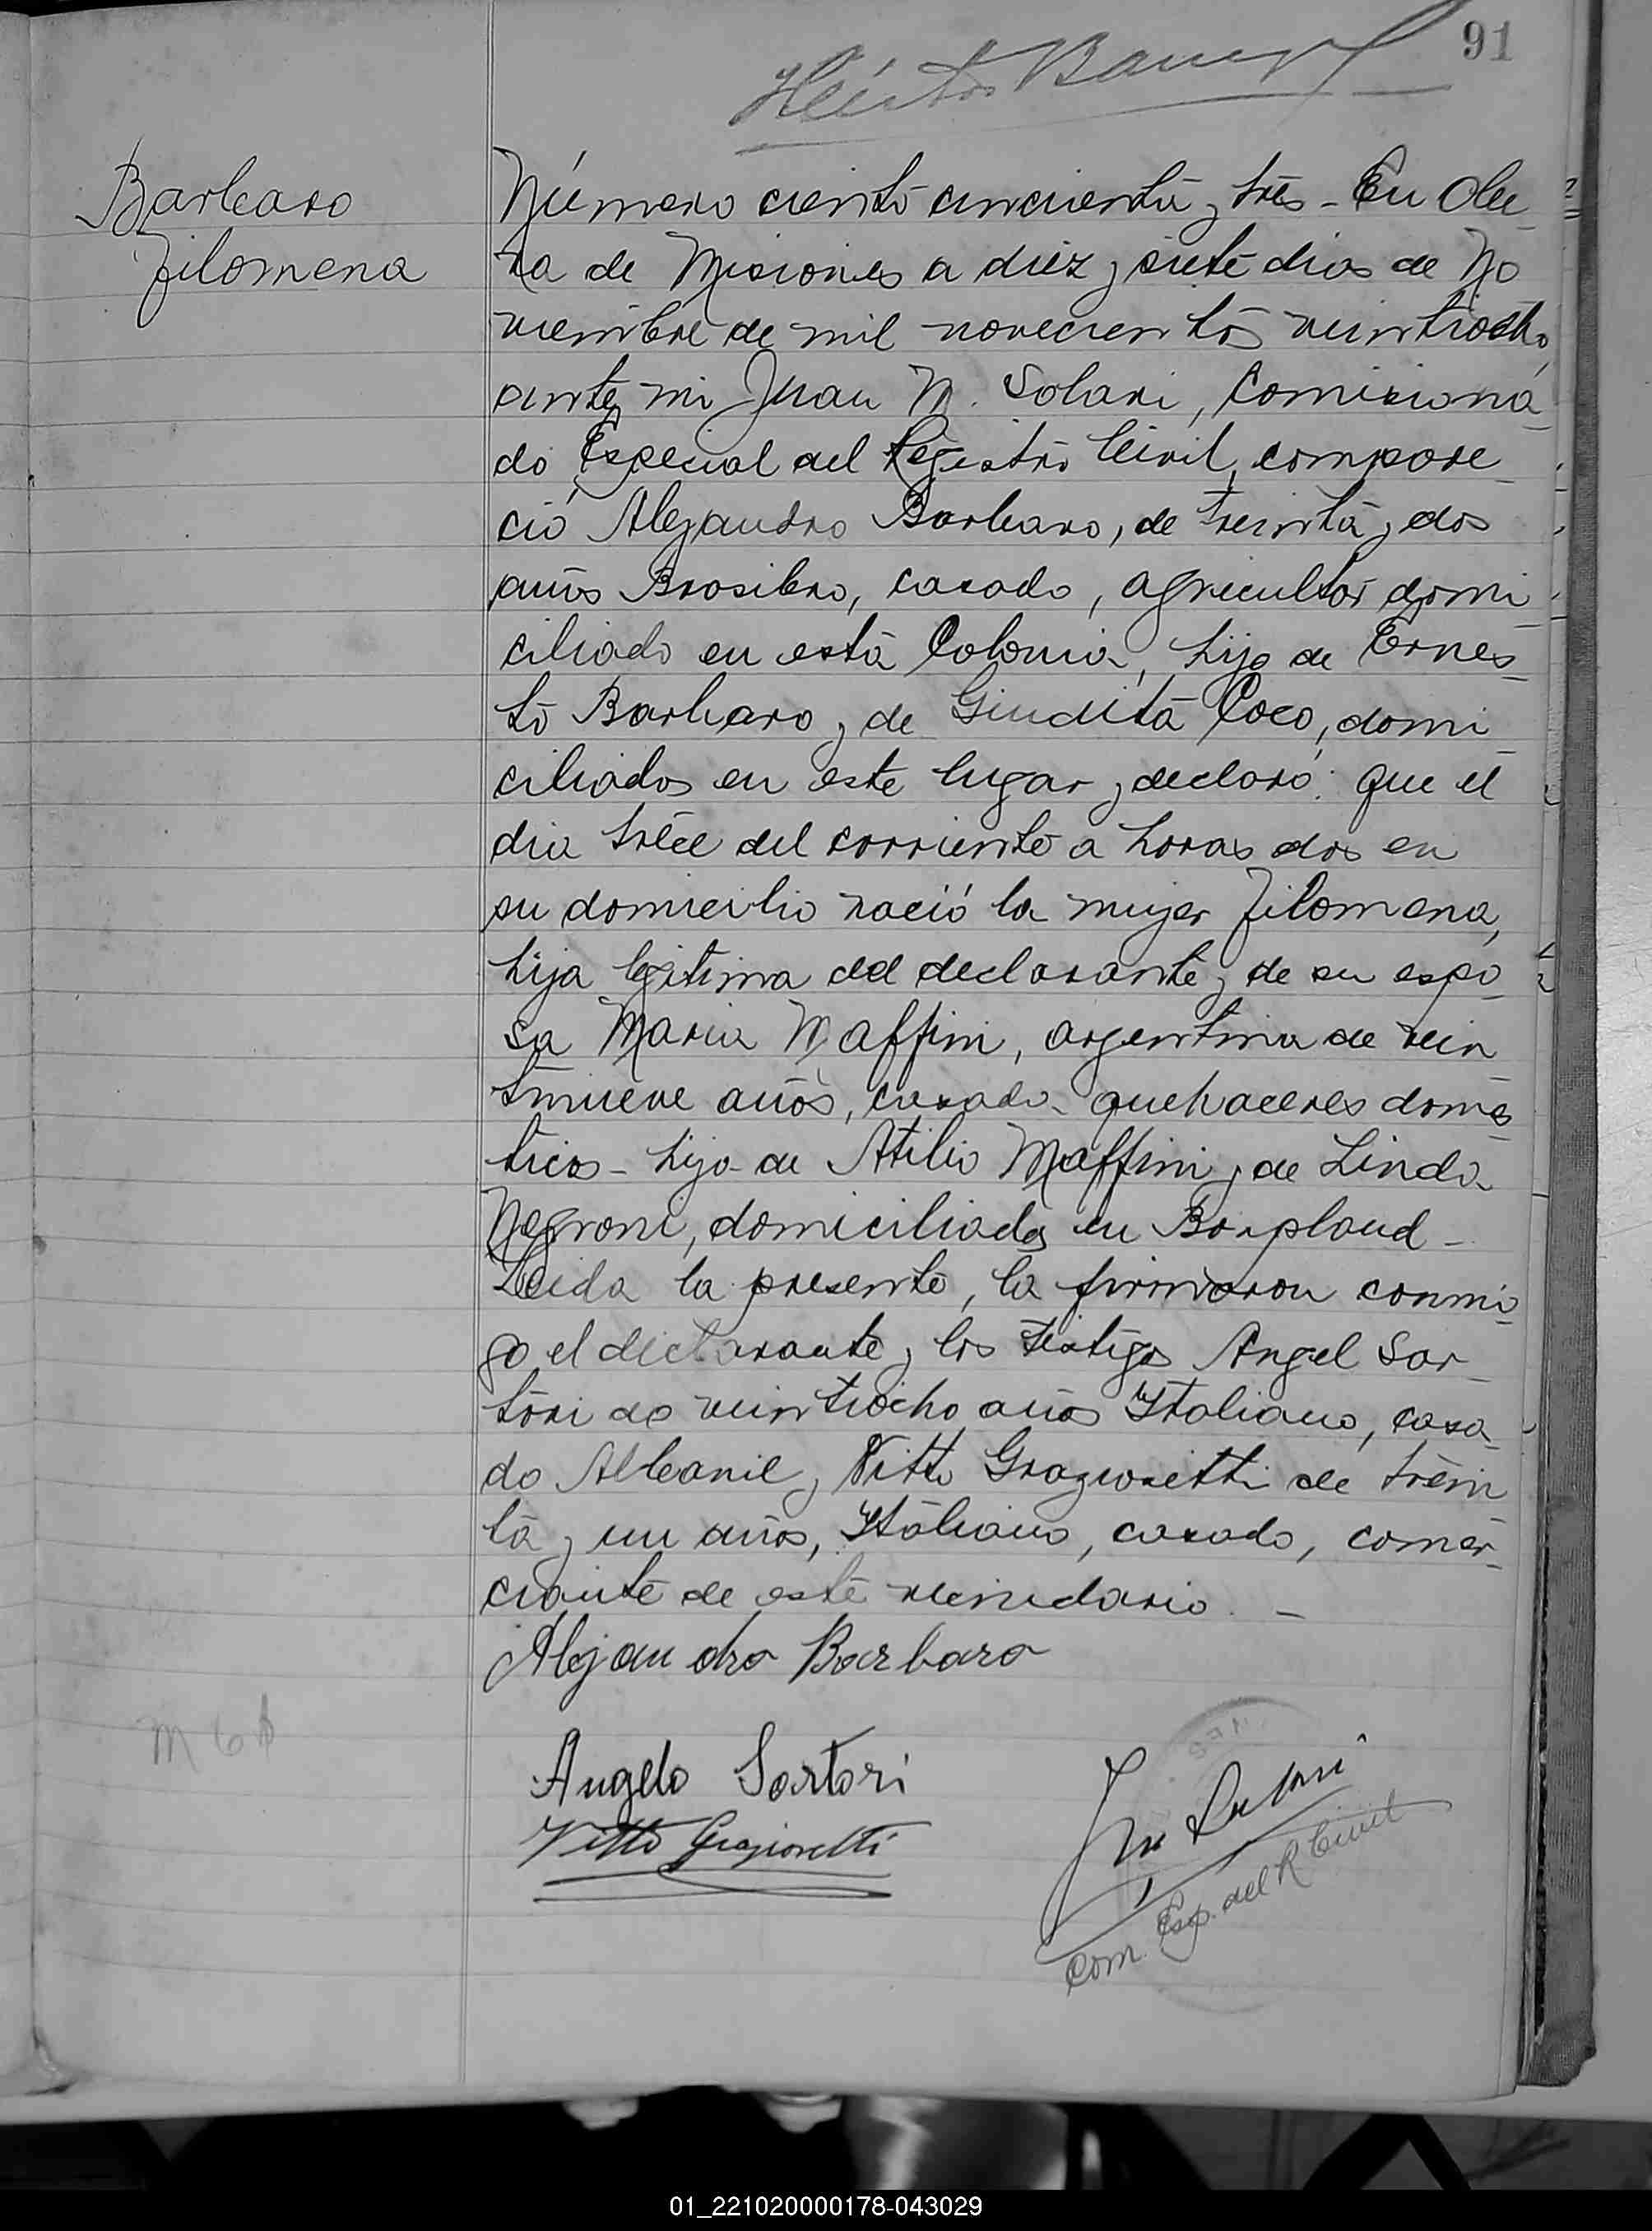 91
Héctor
Barbaro
Filomena
Número ciento cincuenta y tres - En Obe-
ra de Misiones a diez y siete dias de No
viembre de mil novecientos veintiocho,
ante mi Juan M. Solari, Comisiona-
do Especial del Registro Civil, compare-
ció Alejandro Barbaro, de treinta y dos
años Brasilero, casado, agricultor domi-
ciliado en esta Colonia, hijo de Ernes-
to Barbaro y de Giudita Coco, domi-
ciliados en este lugar y declaró: que el
dia tréce del corriente a horas dos en
su domicilio nació la mujer Filomena,
hija legitima del declarante y de su espo-
sa Maria Maffini, argentina de vein
tinueve años, casada quehaceres domés-
ticos - hija de Atilio Maffini y de Linda
Negroni, domiciliados en Bonpland -
Leida la presente, la firmaron conmi
go el declarante y los testigos Angel Sar-
tori de veintiocho años Italiano, casa-
do Albanil y Vitto Graziosetti de trein
ta y un años, Italiano, casado, comer-
ciante de este vecindario. -
Alejandro Barbaro
Angelo Sartori
Vitto Graziosetti
Com. Esp. del R Civil
01_221020000178-043029